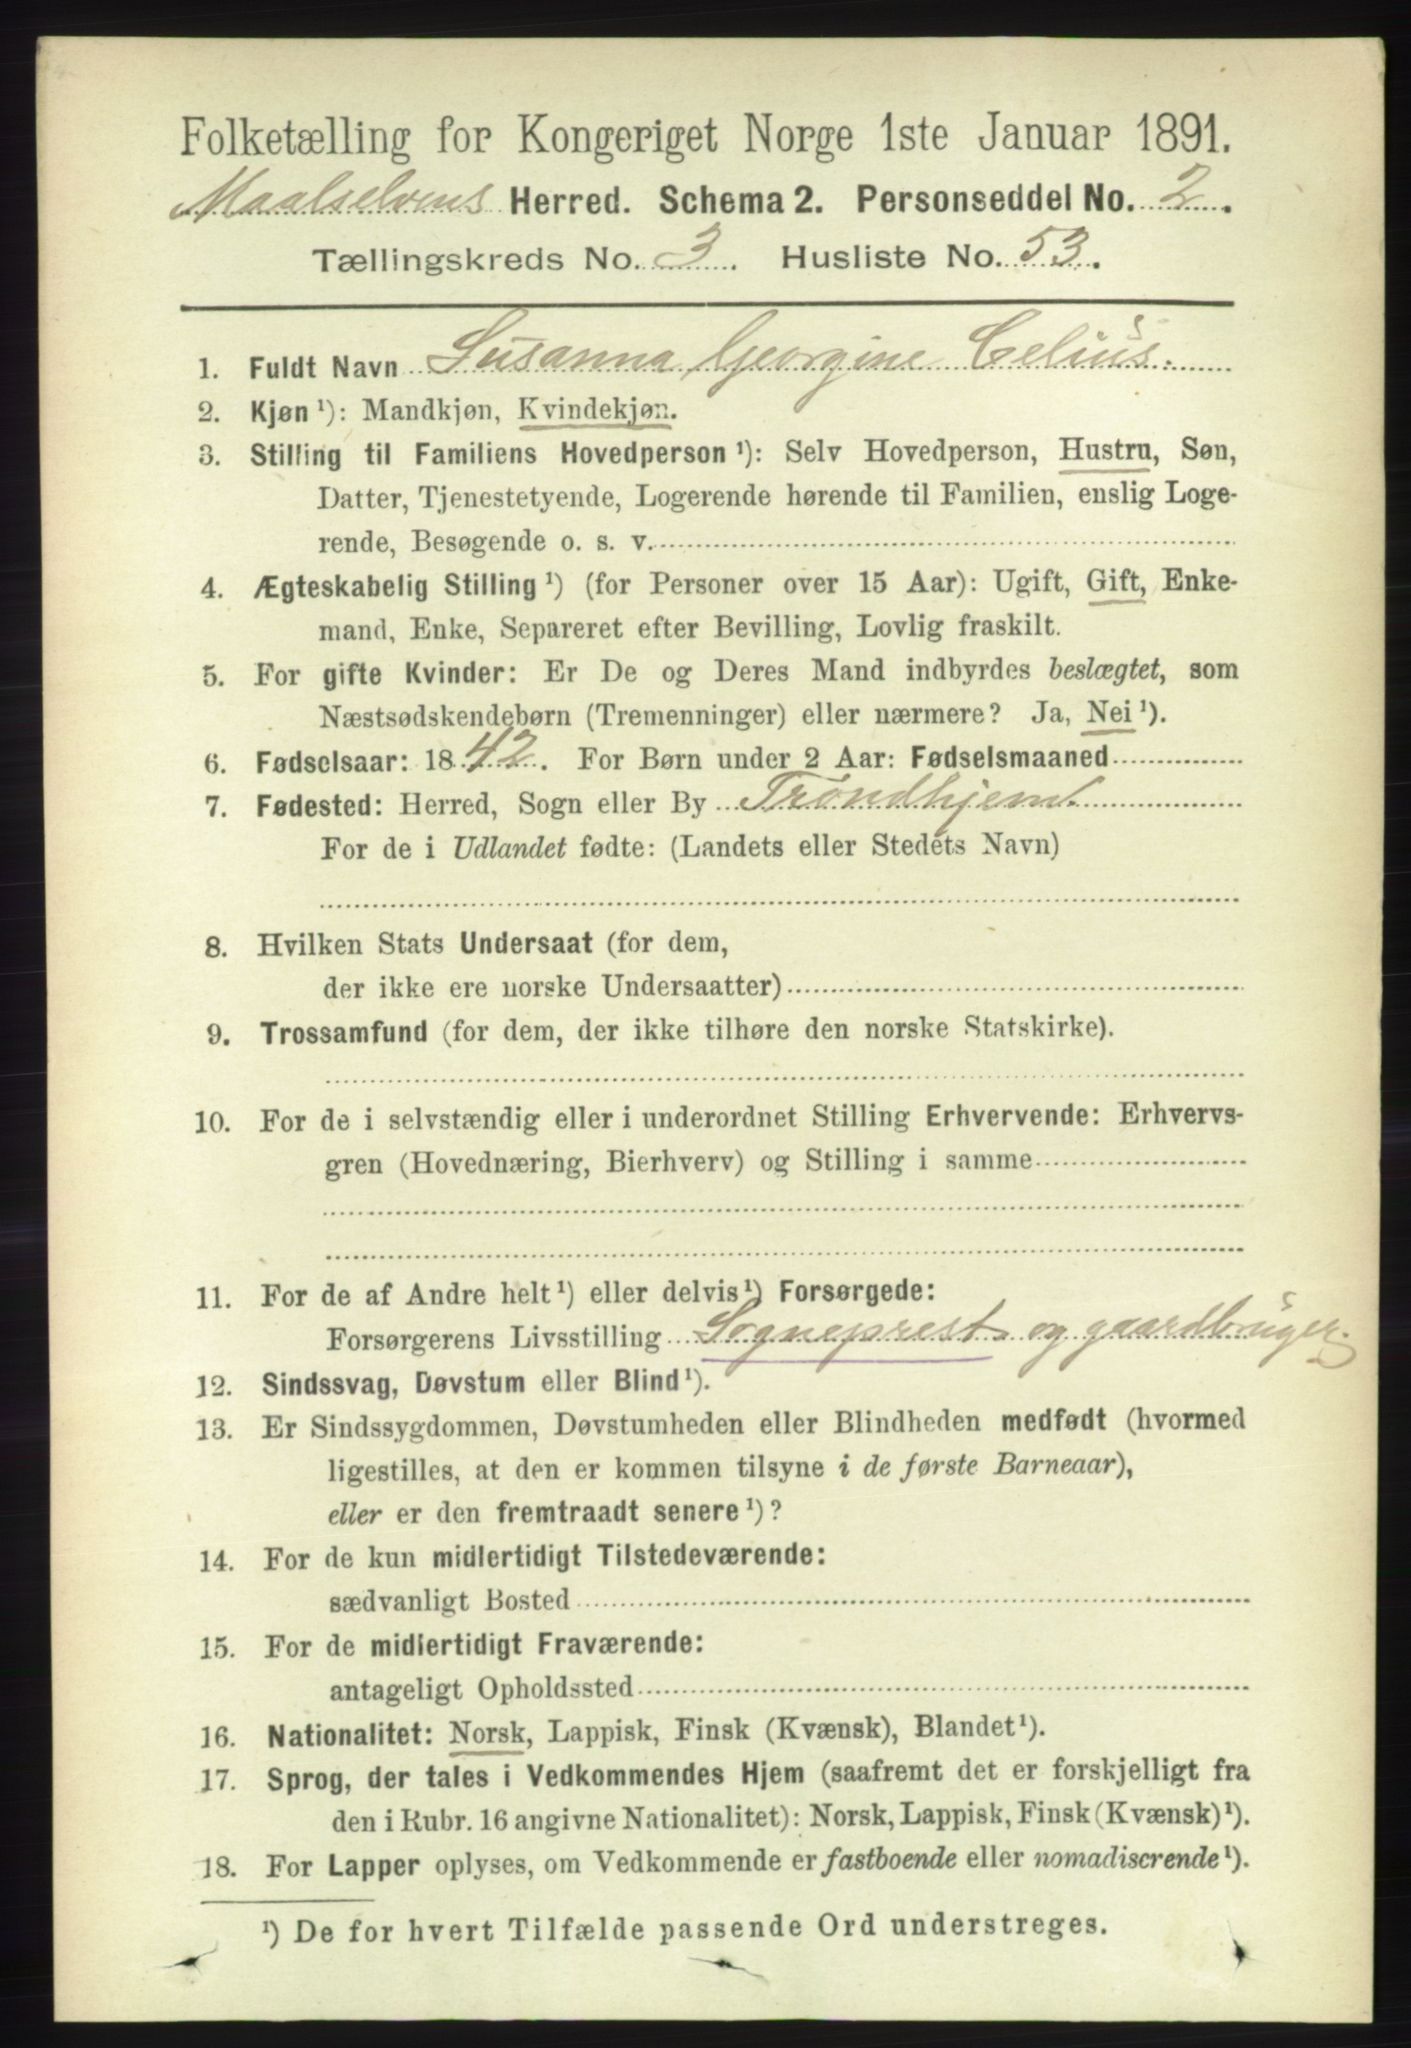 Folketælling for Kongeriget Norge 1ste Januar 1891.
Maalselvens Herred. Schema 2. Personseddel No. 2.
Tællingskreds No. 3. Husliste No. 53.
1. Fuldt Navn Susanna Georgine Celius.
2. Kjøn ¹): Mandkjøn, Kvindekjøn.
3. Stilling til Familiens Hovedperson ¹): Selv Hovedperson, Hustru, Søn,
Datter, Tjenestetyende, Logerende hørende til Familien, enslig Loge-
rende, Besøgende o. s. v.
4. Ægteskabelig Stilling ¹) (for Personer over 15 Aar): Ugift, Gift, Enke-
mand, Enke, Separeret efter Bevilling, Lovlig fraskilt.
5. For gifte Kvinder: Er De og Deres Mand indbyrdes beslægtet, som
Næstsødskendebørn (Tremenninger) eller nærmere? Ja, Nei ¹).
6. Fødselsaar: 1842. For Børn under 2 Aar: Fødselsmaaned
7. Fødested: Herred, Sogn eller By Trondhjem.
For de i Udlandet fødte: (Landets eller Stedets Navn)
8. Hvilken Stats Undersaat (for dem,
der ikke ere norske Undersaatter)
9. Trossamfund (for dem, der ikke tilhøre den norske Statskirke).
10. For de i selvstændig eller i underordnet Stilling Erhvervende: Erhvervs-
gren (Hovednæring, Bierhverv) og Stilling i samme
11. For de af Andre helt ¹) eller delvis ¹) Forsørgede:
Forsørgerens Livsstilling Sogneprest og gaardbruger.
12. Sindssvag, Døvstum eller Blind ¹).
13. Er Sindssygdommen, Døvstumheden eller Blindheden medfødt (hvormed
ligestilles, at den er kommen tilsyne i de første Barneaar),
eller er den fremtraadt senere ¹)?
14. For de kun midlertidigt Tilstedeværende:
sædvanligt Bosted
15. For de midlertidigt Fraværende:
antageligt Opholdssted
16. Nationalitet: Norsk, Lappisk, Finsk (Kvænsk), Blandet ¹).
17. Sprog, der tales i Vedkommendes Hjem (saafremt det er forskjelligt fra
den i Rubr. 16 angivne Nationalitet): Norsk, Lappisk, Finsk (Kvænsk) ¹).
18. For Lapper oplyses, om Vedkommende er fastboende eller nomadiserende ¹).
¹) De for hvert Tilfælde passende Ord understreges.